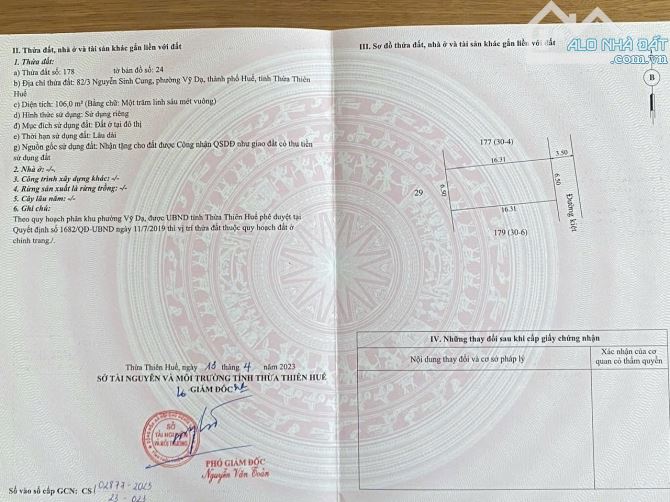 II. Thửa đất, nhà ở và tài sản khác gắn liền với đất
1. Thửa đất:
a) Thửa đất số: 178 tờ bản đồ số: 24
b) Địa chỉ thửa đất: 82/3 Nguyễn Sinh Cung, phường Vỹ Dạ, thành phố Huế, tỉnh Thừa Thiên
Huế
c) Diện tích: 106,0 m² (Bằng chữ: Một trăm linh sáu mét vuông)
d) Hình thức sử dụng: Sử dụng riêng
đ) Mục đích sử dụng đất: Đất ở tại đô thị
e) Thời hạn sử dụng đất: Lâu dài
g) Nguồn gốc sử dụng đất: Nhận tặng cho đất được Công nhận QSDĐ như giao đất có thu tiền
sử dụng đất
2. Nhà ở: -/-,
3. Công trình xây dựng khác: -/-
4. Rừng sản xuất là rừng trồng: -/-
5. Cây lâu năm: -/-
6. Ghi chú:
Theo quy hoạch phân khu phường Vỹ Dạ, được UBND tỉnh Thừa Thiên Huế phê duyệt tại
Quyết định số 1682/QĐ-UBND ngày 11/7/2019 thì vị trí thửa đất thuộc quy hoạch đất ở
chỉnh trang./.
Thừa Thiên Huế, ngày 13 tháng 4 năm 2023
SỞ TÀI NGUYÊN VÀ MÔI TRƯỜNG TỈNH THỪA THIÊN HUẾ
GIÁM ĐỐC
SỞ
TÀI NGUYÊN
VÀ MÔI TRƯỜNG
PHÓ GIÁM ĐỐC
Nguyễn Văn Toàn
Số vào sổ cấp GCN: CS 02877-2023
23-023
III. Sơ đồ thửa đất, nhà ở và tài sản khác gắn liền với đất
ALO NHÀ ĐẤT
B
177 (30-4)
16.31
3.50
29
6.50
6.50
Đường kiệt
16.31
179 (30-6)
IV. Những thay đổi sau khi cấp giấy chứng nhận
Nội dung thay đổi và cơ sở pháp lý
Xác nhận của cơ
quan có thẩm quyền